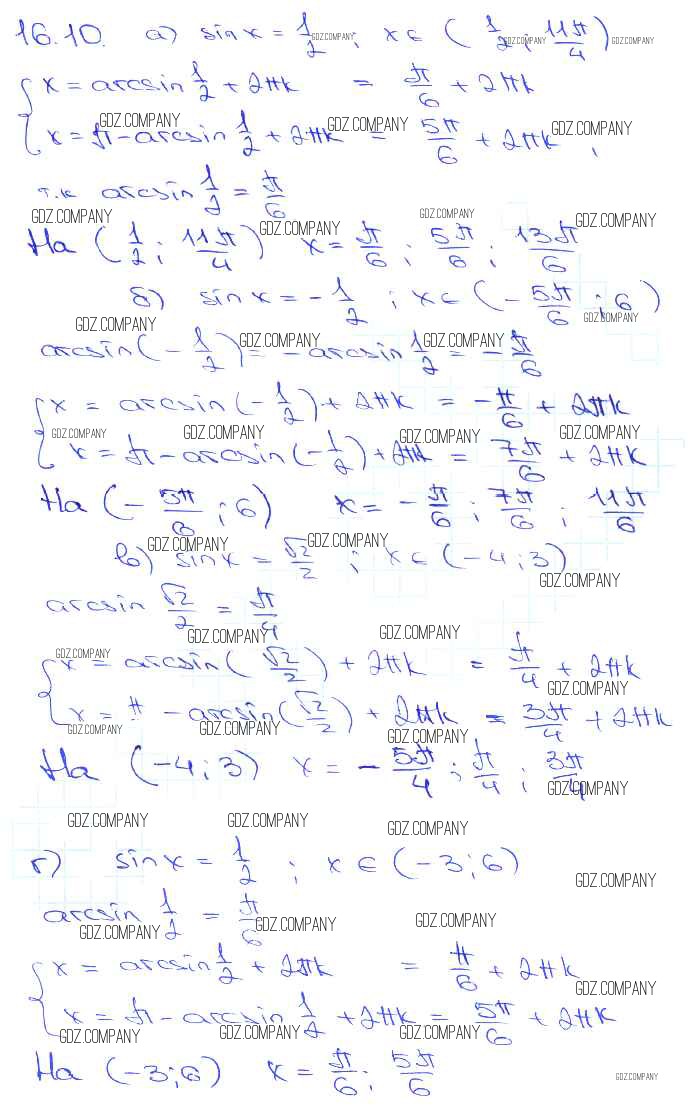 16.10. а) sin x = 1/2 ; x ∈ (1/2 ; 11π/4)
{ x = arcsin 1/2 + 2πk = π/6 + 2πk
x = π - arcsin 1/2 + 2πk = 5π/6 + 2πk ,
т.к arcsin 1/2 = π/6
На (1/2 ; 11π/4) x = π/6 ; 5π/6 ; 13π/6
б) sin x = - 1/2 ; x ∈ (- 5π/6 ; 6)
arcsin (- 1/2) = - arcsin 1/2 = - π/6
{ x = arcsin (- 1/2) + 2πk = - π/6 + 2πk
x = π - arcsin (- 1/2) + 2πk = 7π/6 + 2πk
На (- 5π/6 ; 6) x = - π/6 ; 7π/6 ; 11π/6
в) sin x = √2/2 ; x ∈ (-4 ; 3)
arcsin √2/2 = π/4
{ x = arcsin (√2/2) + 2πk = π/4 + 2πk
x = π - arcsin (√2/2) + 2πk = 3π/4 + 2πk
На (-4 ; 3) x = - 5π/4 ; π/4 ; 3π/4
г) sin x = 1/2 ; x ∈ (-3 ; 6)
arcsin 1/2 = π/6
{ x = arcsin 1/2 + 2πk = π/6 + 2πk
x = π - arcsin 1/2 + 2πk = 5π/6 + 2πk
На (-3 ; 6) x = π/6 ; 5π/6
GDZ.COMPANY